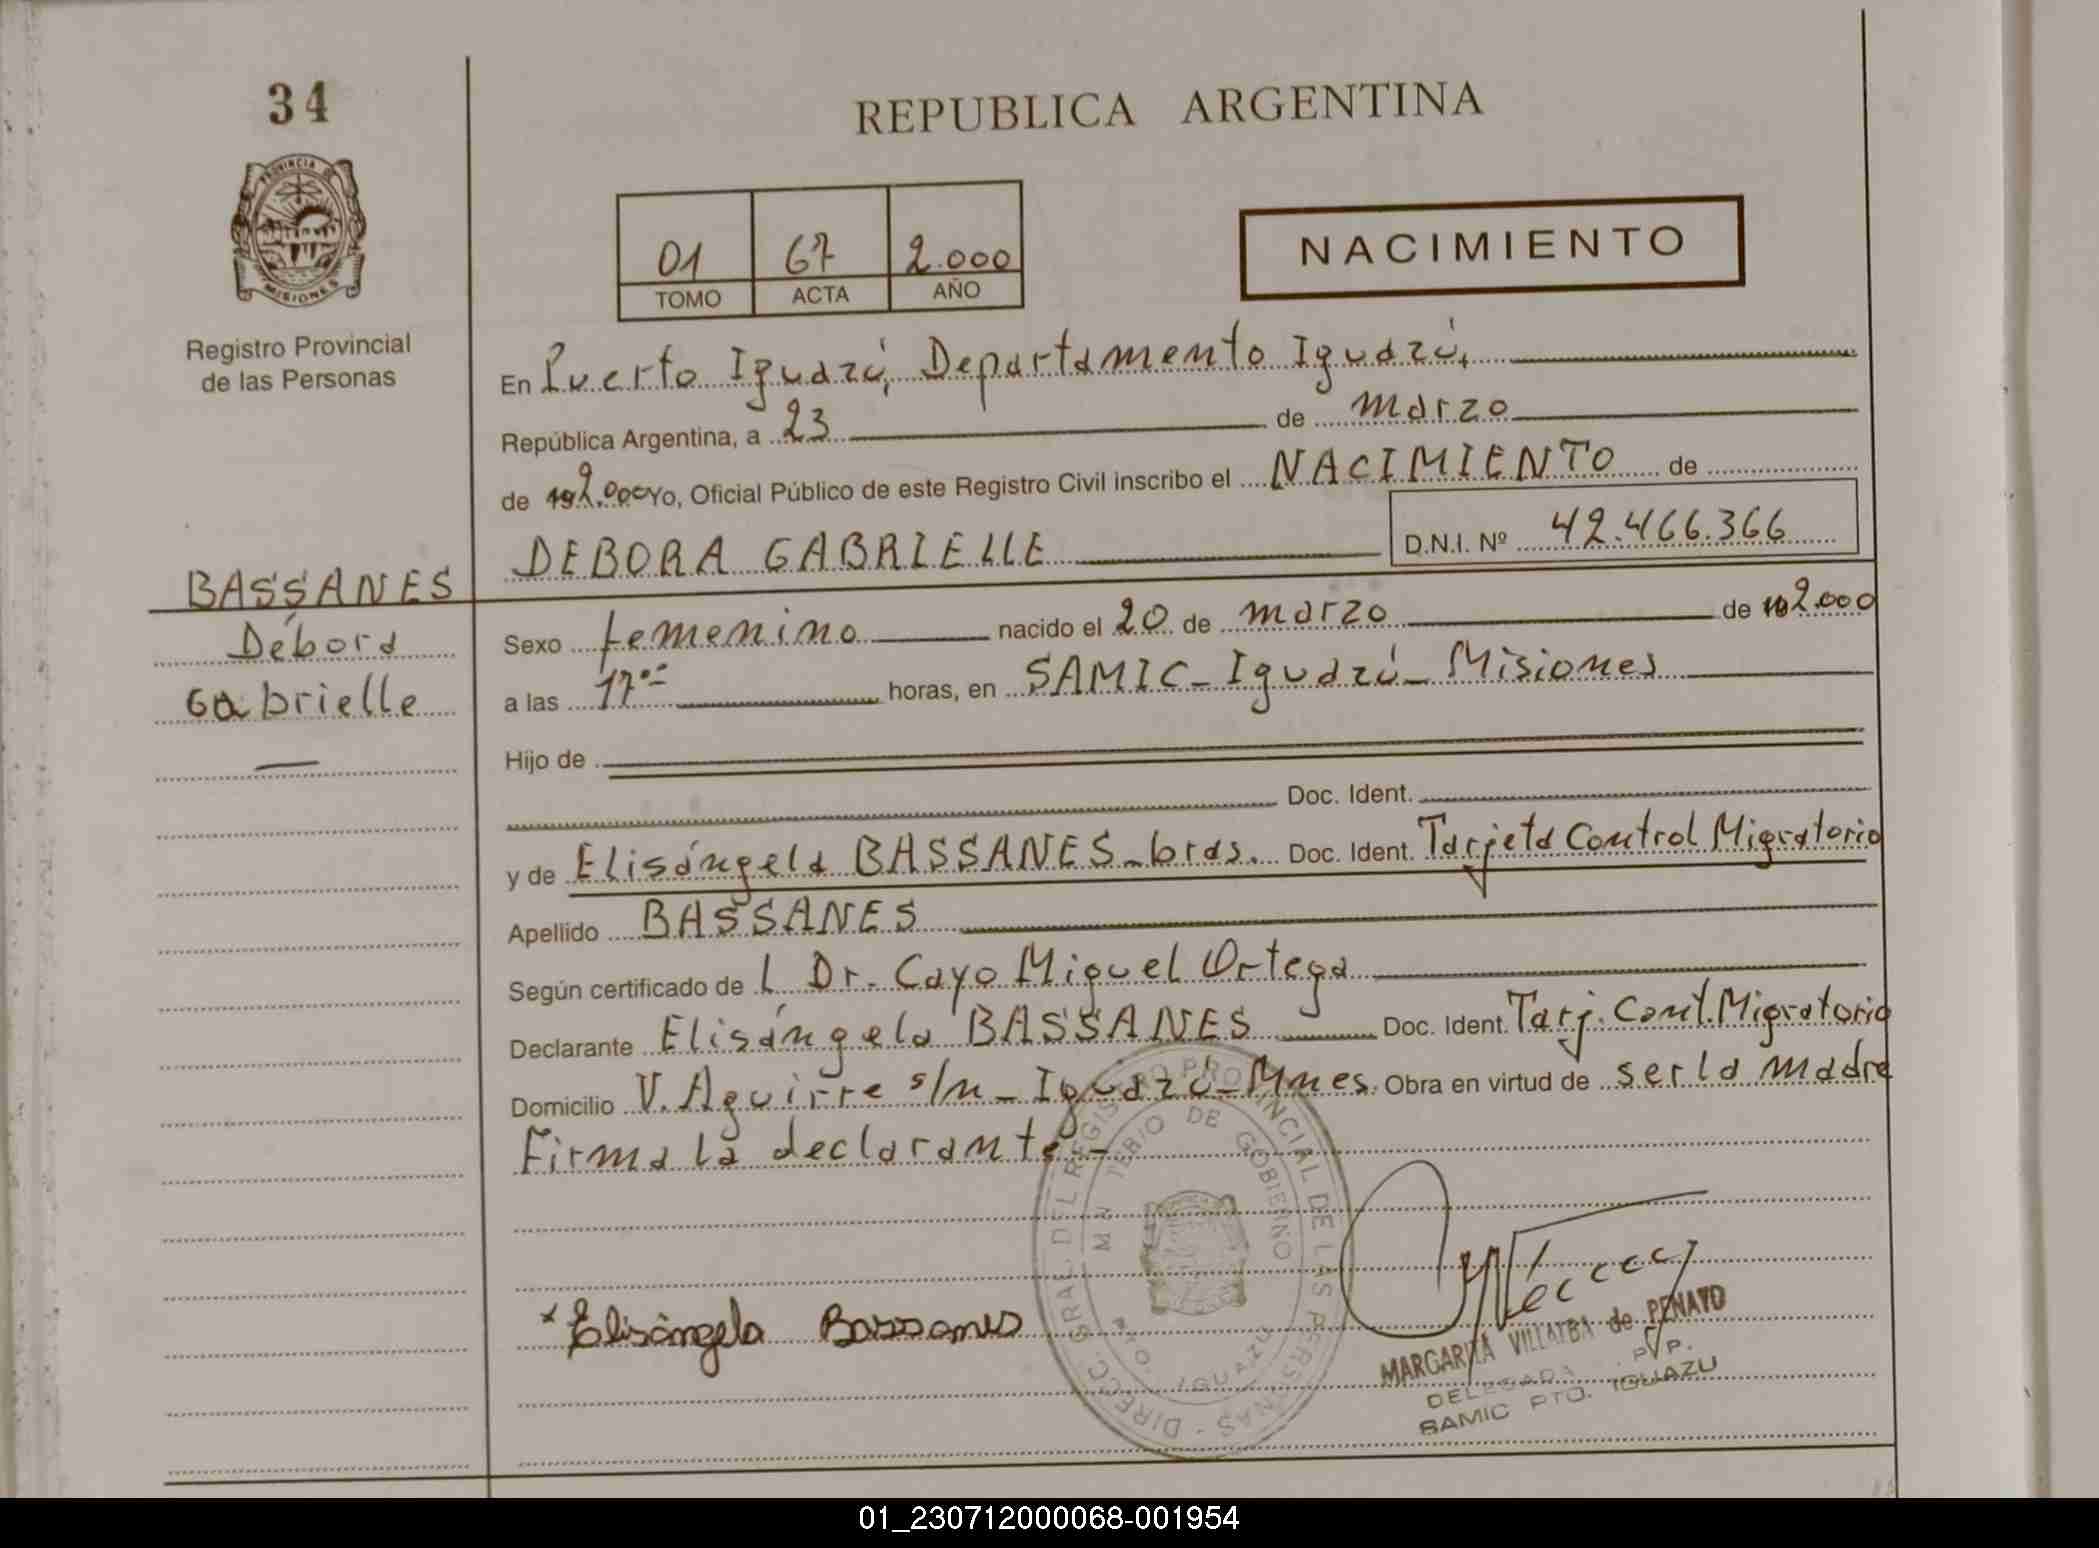 34
REPUBLICA ARGENTINA
PROVINCIA DE
MISIONES
Registro Provincial
de las Personas
01 67 2.000
TOMO ACTA AÑO
NACIMIENTO
En Puerto Iguazú, Departamento Iguazú,
República Argentina, a 23 de marzo
de 192.000 Yo, Oficial Público de este Registro Civil inscribo el NACIMIENTO de
DEBORA GABRIELLE D.N.I. Nº 42.466.366
BASSANES
Débora
Gabrielle
Sexo femenino nacido el 20 de marzo de 2.000
a las 17 horas, en SAMIC - Iguazú - Misiones
Hijo de
Doc. Ident.
y de Elisángela BASSANES - bras. Doc. Ident. Tarjeta Control Migratorio
Apellido BASSANES
Según certificado de l Dr. Cayo Miguel Ortega
Declarante Elisángela BASSANES Doc. Ident. Tarj. Cont. Migratorio
Domicilio V. Aguirre s/n - Iguazú - Mnes. Obra en virtud de ser la madre
Firma la declarante.-
DIRECC. GRAL. DEL REGISTRO PROVINCIAL DE LAS PERSONAS -
MINISTERIO DE GOBIERNO
IGUAZU
x Elisângela Bassanes
MARGARITA VILLALBA de PENAYO
DELEGADA
SAMIC PTO. IGUAZU
01_230712000068-001954